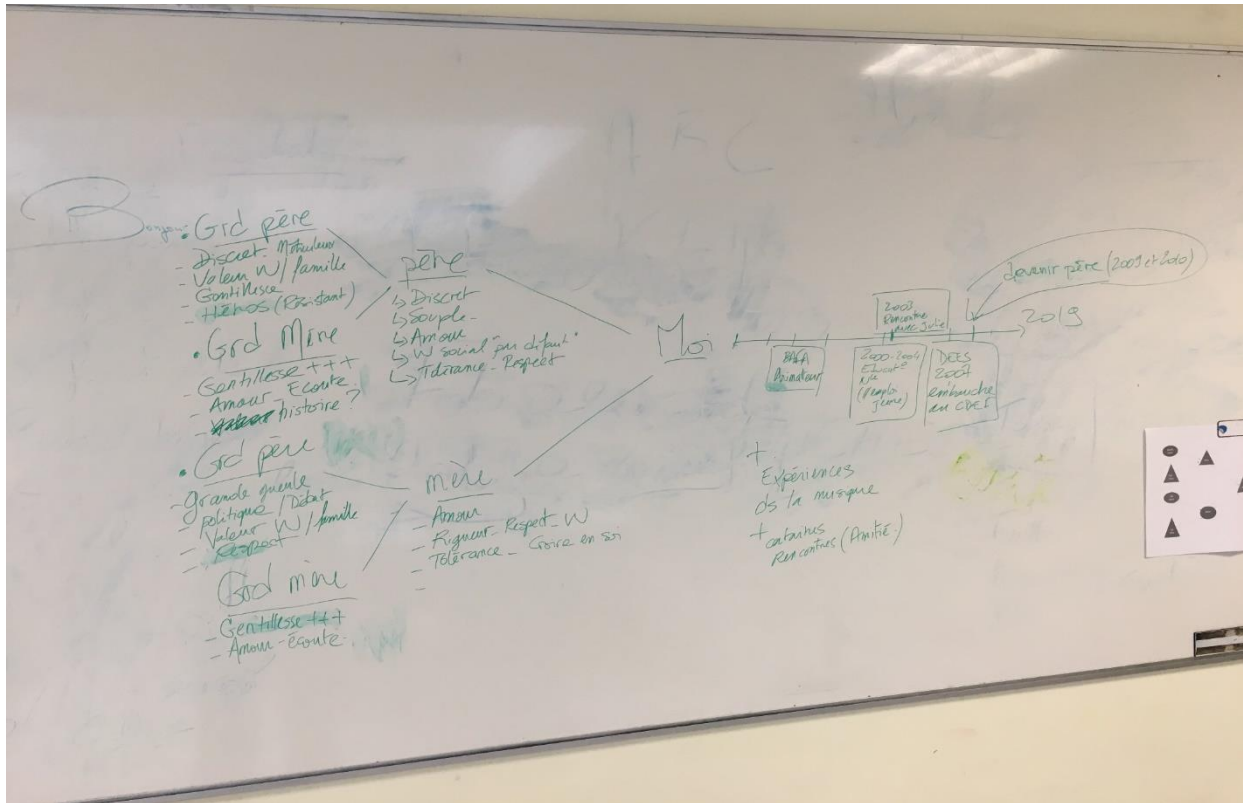 Bonjour
• Grd père
- Discret
- Valeur W / famille
- Gentillesse
- Héros (Résistant)
• Grd Mère
- Gentillesse +++
- Amour Ecoute
- histoire ?
• Grd père
- grande gueule
- politique / Débat
- Valeur W / famille
- Respect
-
Grd mère
- Gentillesse +++
- Amour - écoute
père
↳ Discret
↳ Souple -
↳ Amour
↳ W social par défaut
↳ Tolérance - Respect
mère
- Amour
- Rigueur - Respect - W
- Tolérance - Croire en soi
-
Moi
BAFA
Animateur
2003
Rencontre
avec Julie
2000-2004
(emploi
jeune)
DEES
2007
embauche
au CDEF
devenir père (2009 et 2010)
2019
+
Expériences
ds la musique
+ certaines
Rencontres (Amitié)